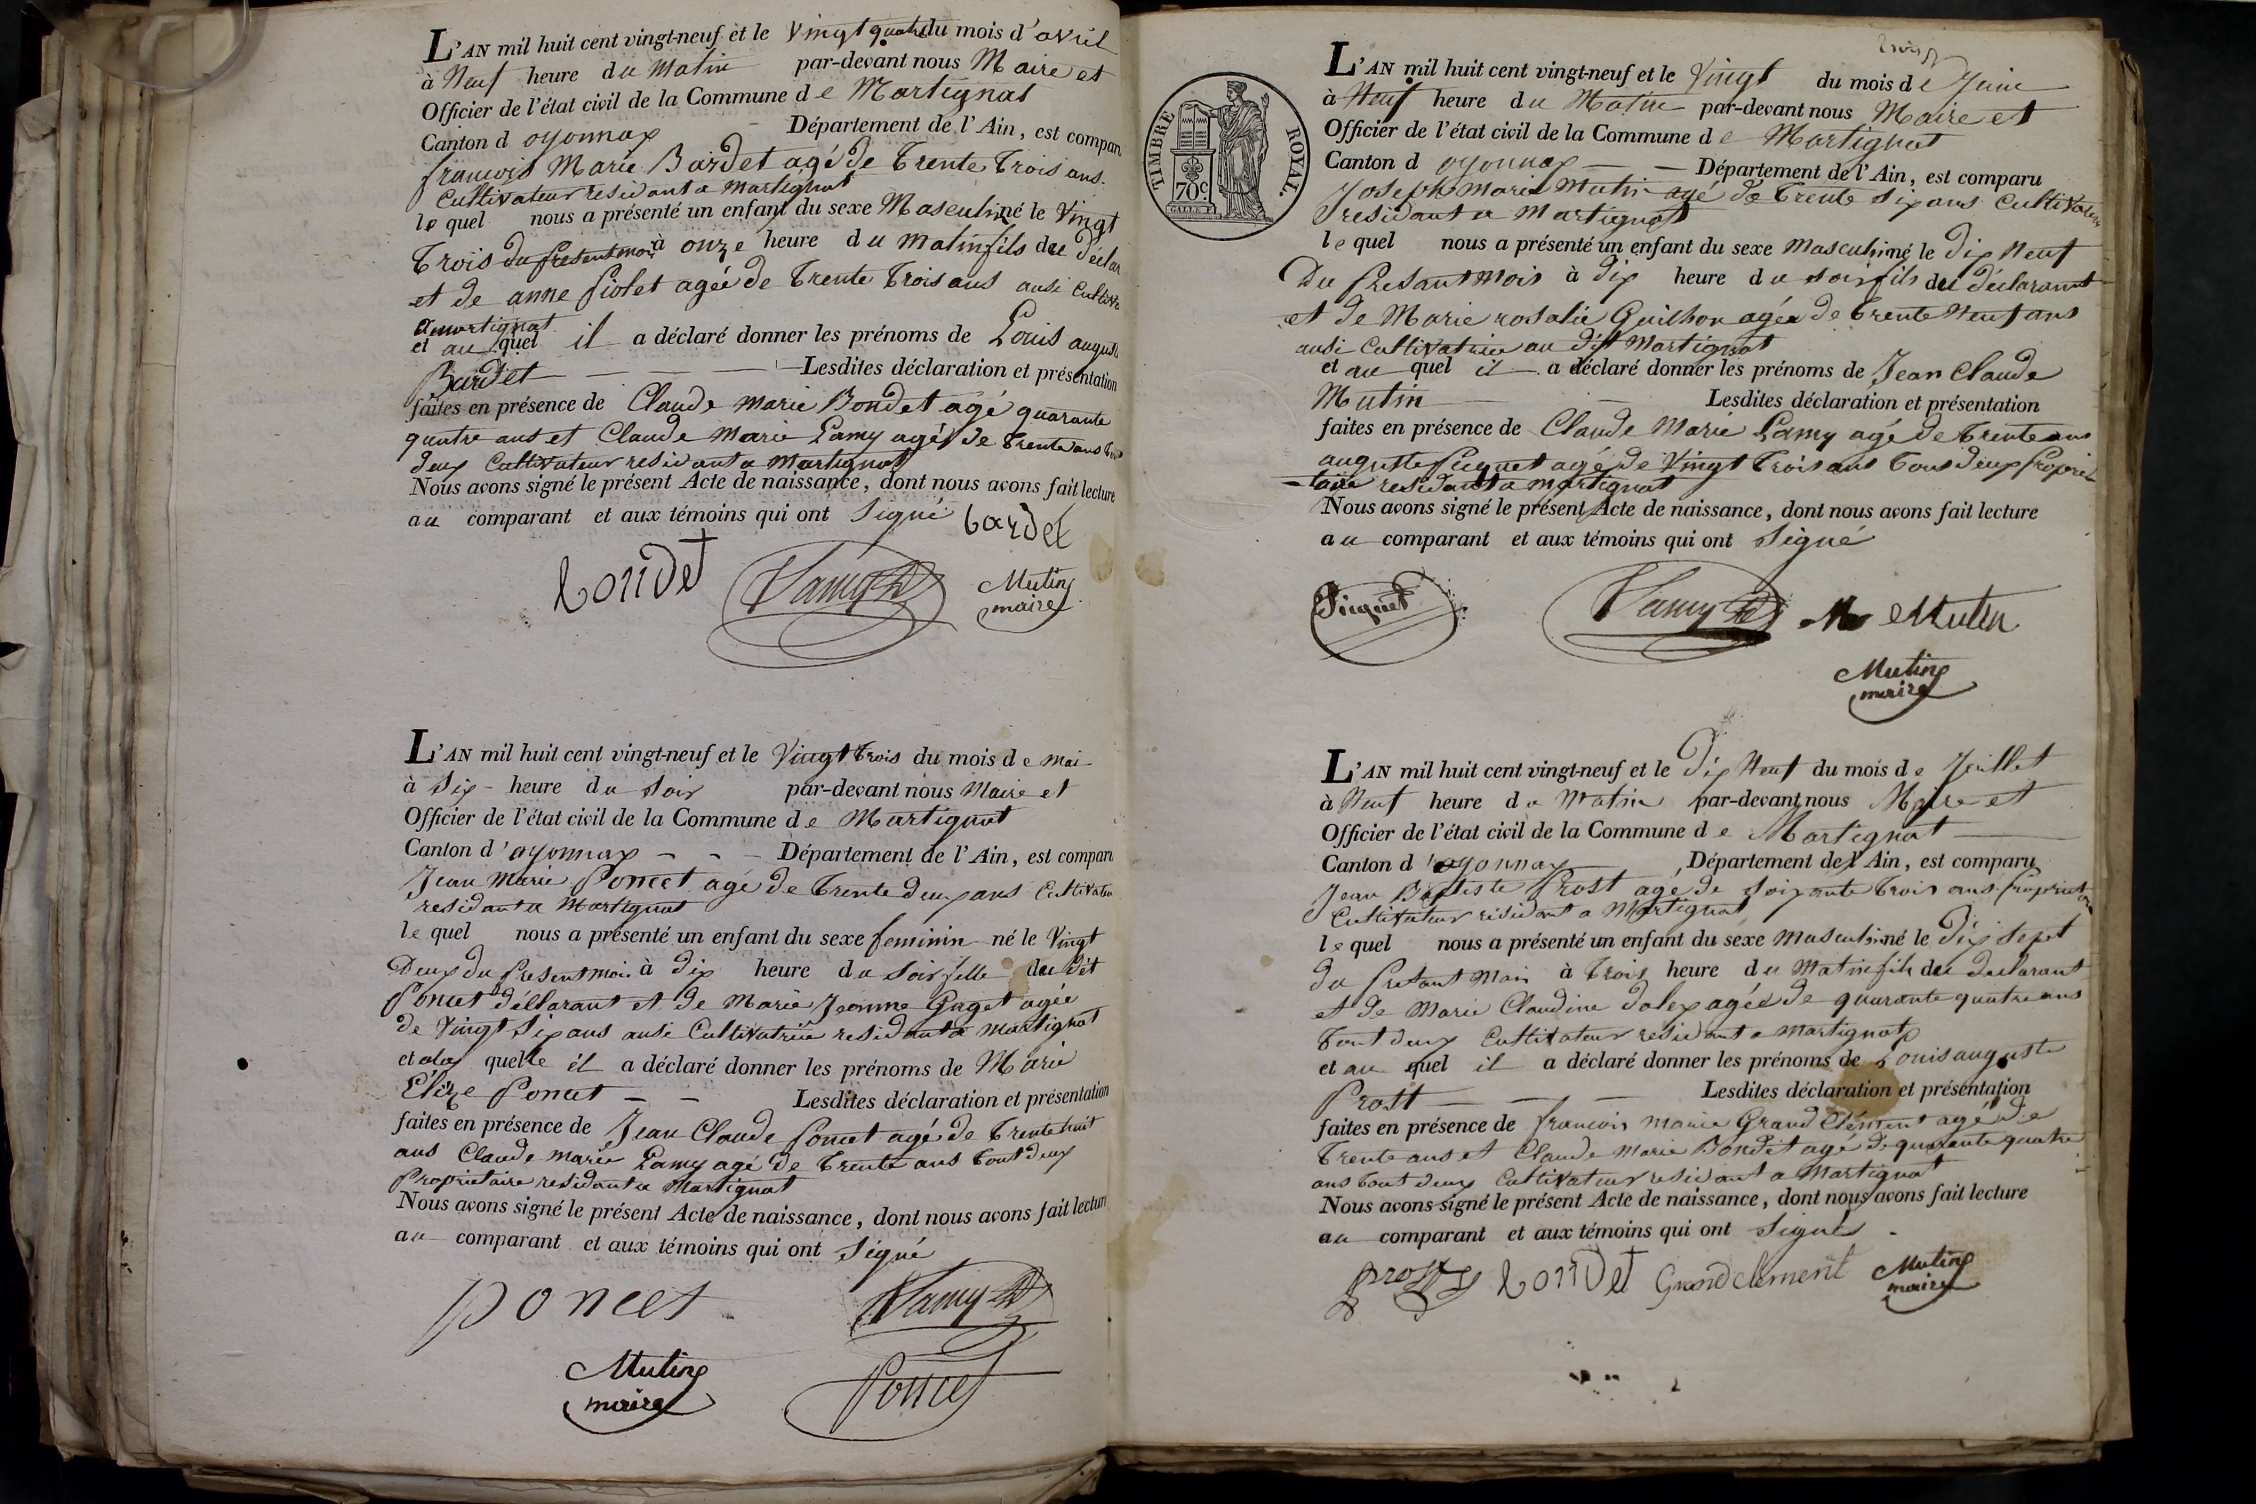 L'AN mil huit cent vingt-neuf et le Vingt quatre du mois d'avril
à Neuf heure du Matin par-devant nous Maire et
Officier de l'état civil de la Commune de Martignat
Canton d oyonnax Département de l'Ain, est compar
francois Marie Bardet agé de trente trois ans
Cultivateur residant a Martignat
le quel nous a présenté un enfant du sexe Masculin né le Vingt
trois du present mois à onze heure du matin fils du déclar
et de anne piolet agée de trente trois ans ausi Cultiva
a martignat
et au quel il a déclaré donner les prénoms de Louis auguste
Bardet Lesdites déclaration et présentation
faites en présence de Claude Marie Bondet agé quarante
quatre ans et Claude Marie Lamy agé de trente ans tout
deux Cultivateur residant a Martignat
Nous avons signé le présent Acte de naissance, dont nous avons fait lecture
au comparant et aux témoins qui ont Signé bardet
bondet Lamy Mutin
maire
L'AN mil huit cent vingt-neuf et le Vingt trois du mois de mai
à Six heure du Soir par-devant nous Maire et
Officier de l'état civil de la Commune de Martignat
Canton d'oyonnax Département de l'Ain, est compar
Jean Marie Poncet agé de trente deux ans Cultivateu
residant a Martignat
le quel nous a présenté un enfant du sexe feminin né le Vingt
Deux du Present mois à dix heure du Soir fille du dét
Poncet déclarant et de Marie Jeanne Gaget agée
de Vingt Six ans ausi Cultivatrice residant a Martignat
et a la quelle il a déclaré donner les prénoms de Marie
Elize Poncet Lesdites déclaration et présentation
faites en présence de Jean Claude Poncet agé de trente huit
ans Claude Marie Lamy agé de trente ans tout deux
Proprietaire residant a Martignat
Nous avons signé le présent Acte de naissance, dont nous avons fait lectur
au comparant et aux témoins qui ont Signé
poncet Lamy
Mutin
maire Poncet
TIMBRE ROYAL
70c.
L'AN mil huit cent vingt-neuf et le Vingt du mois de Juin
à Neuf heure du Matin par-devant nous Maire et
Officier de l'état civil de la Commune de Martignat
Canton d oyonnax Département de l'Ain, est comparu
Joseph Marie Mutin agé de trente Six ans Cultivateur
residant a Martignat
le quel nous a présenté un enfant du sexe Masculin né le dix Neuf
Du Presant Mois à dix heure du soir fils du déclarant
et de Marie rosalie Guilhon agée de trente Neuf ans
ausi Cultivatrice au dit Martignat
et au quel il a déclaré donner les prénoms de Jean Claude
Mutin Lesdites déclaration et présentation
faites en présence de Claude Marie Lamy agé de trente ans
auguste Picquet agé de Vingt trois ans tous deux Propriet
taire residant a Martignat
Nous avons signé le présent Acte de naissance, dont nous avons fait lecture
au comparant et aux témoins qui ont Signé
Picquet Lamy Mutin
Mutin
maire
L'AN mil huit cent vingt-neuf et le Dix Neuf du mois de Juillet
à Neuf heure du Matin par-devant nous Maire et
Officier de l'état civil de la Commune de Martignat
Canton d'oyonnax Département de l'Ain, est comparu
Jean Baptiste Prost agé de Soixante trois ans Propriet
Cultivateur résidant a Martignat
le quel nous a présenté un enfant du sexe Masculin né le Dix Sept
du Presant Mois à trois heure du Matin fils du declarant
et de Marie Claudine dolex agée de quarante quatre ans
tout deux Cultivateur residant a Martignat
et au quel il a déclaré donner les prénoms de Louis auguste
Prost Lesdites déclaration et présentation
faites en présence de francois Marie Grand Clément agé de
trente ans et Claude Marie Bondet agé de quarante quatre
ans tout deux Cultivateur residant a Martignat
Nous avons signé le présent Acte de naissance, dont nous avons fait lecture
au comparant et aux témoins qui ont Signé
prost bondet Grand clement Mutin
maire